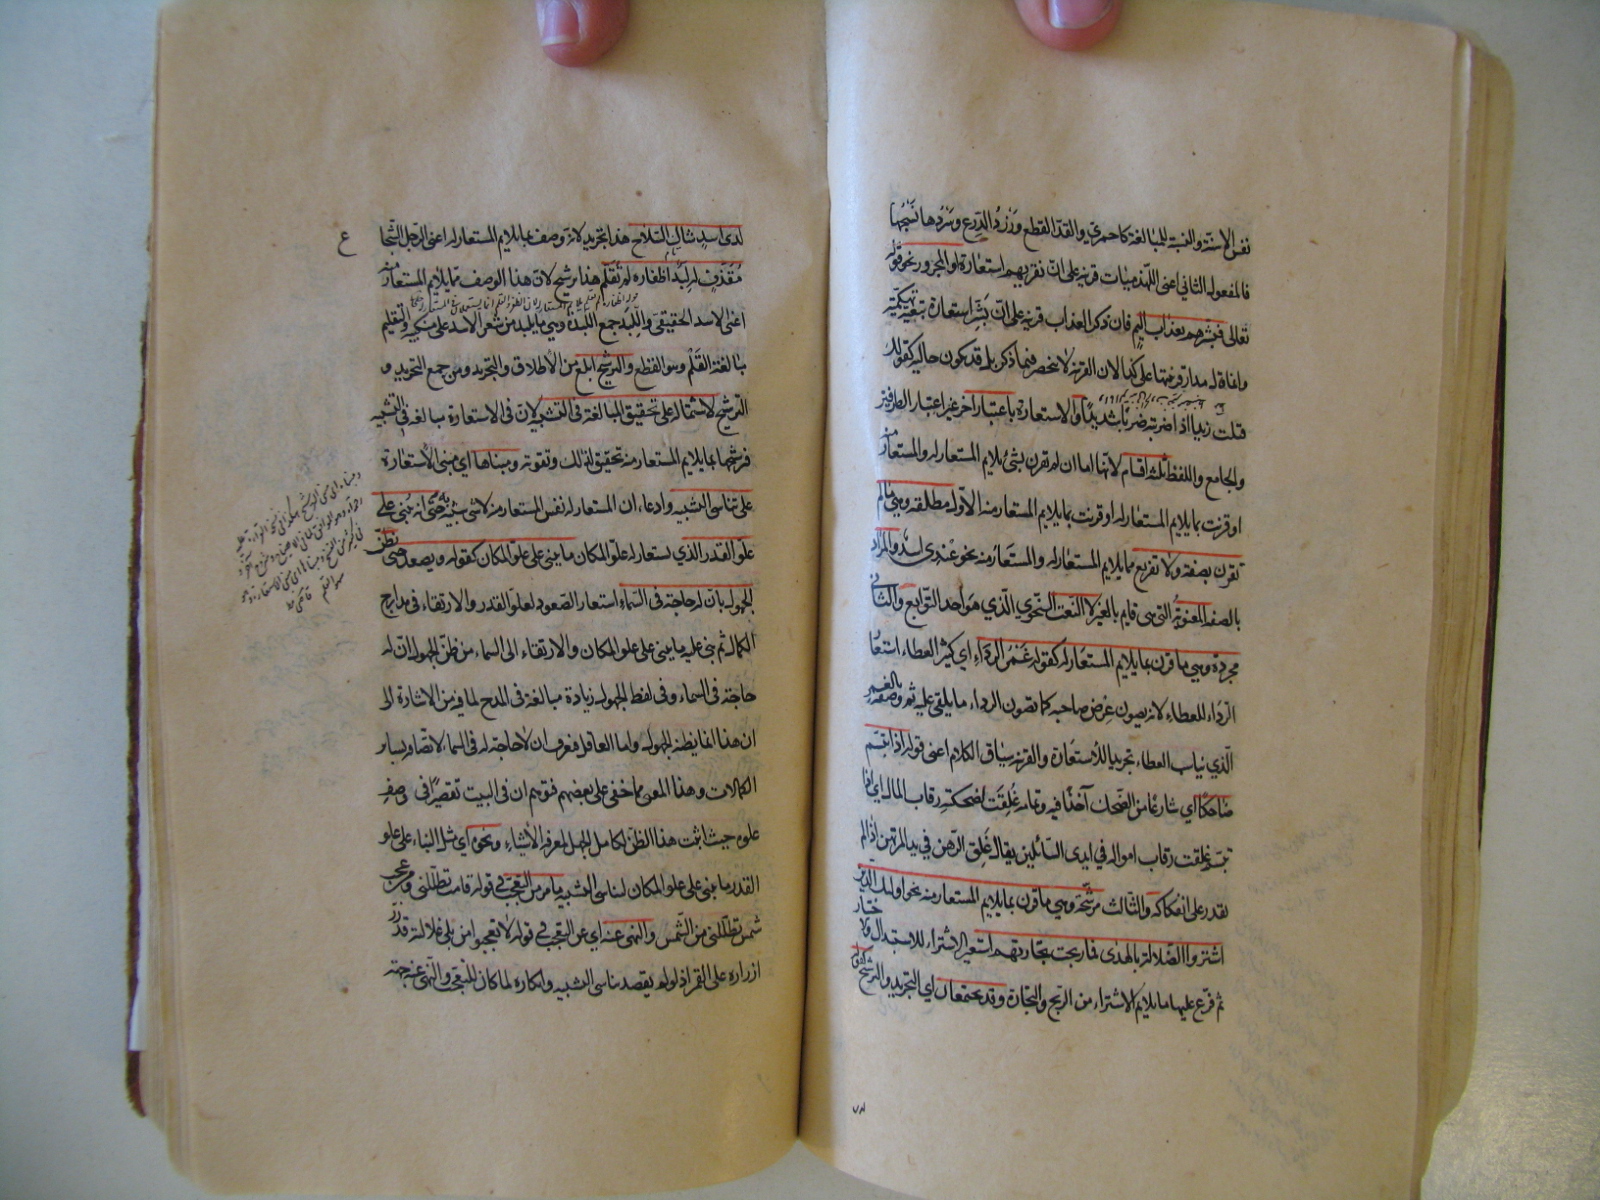 نفس الاسنة والنسبة للمبالغة كاحمري والقد القطع وزرد الدرع وسردها نسجها
فالمفعول الثاني اعنى اللهذميات قرينة على ان نقريهم استعارة او المجرور نحو قوله
تعالى فبشرهم بعذاب اليم فان ذكر العذاب قرينة على ان بشر استعارة تبعية تهكمية
وانما قال مدار قرينتها على كذا لان القرينة لا تنحصر فيما ذكر بل قد تكون حالية كقولك
قتلت زيدا اذا ضربته ضربا شديدا والاستعارة باعتبار آخر غير اعتبار الطرفين
والجامع واللفظ ثلثة اقسام لانها اما ان لم تقرن بشئ يلايم المستعار له والمستعار منه
او قرنت بما يلايم المستعار له او قرنت بما يلايم المستعار منه الاول مطلقة وهي ما لم
تقرن بصفة ولا تفريع مما يلايم المستعار له والمستعار منه نحو عندي اسد والمراد
بالصفة المعنوية التي هي قايم بالغير لا النعت النحوي الذي هو احد التوابع والثاني
مجردة وهي ما قرن بما يلايم المستعار له كقوله غمر الرداء اي كثير العطاء استعار
الرداء للعطاء لانه يصون عرض صاحبه كما يصون الرداء ما يلقى عليه ثم وصفه بالغمر
الذي يناسب العطاء تجريدا للاستعارة والقرينة سياق الكلام اعنى قوله اذا تبسم
ضاحكا اي شارعا من الضحك آخذا فيه وتمامه غلقت لضحكته رقاب المال اي اذا
تبسم غلقت رقاب امواله في ايدى السائلين يقال غلق الرهن في يد المرتهن اذا لم
يقدر على انفكاكه والثالث مرشحة وهي ما قرن بما يلايم المستعار منه نحو اولئك الذين
اشتروا الضلالة بالهدى فما ربحت تجارتهم استعير الاشتراء للاستبدال والاختيار
ثم فرع عليها ما يلايم الاشتراء من الربح والتجارة وقد يجتمعان اي التجريد والترشيح كقوله
لدى
لدى اسد شاك السلاح هذا تجريد لانه وصف بما يلايم المستعار له اعنى الرجل الشجاع
مقذف له لبد اظفاره لم تقلم هذا ترشيح لان هذا الوصف مما يلايم المستعار منه
اعنى الاسد الحقيقي واللبد جمع اللبدة وهي ما يلبد من شعر الاسد على منكبيه والتقليم
مبالغة القلم وهو القطع والترشيح ابلغ من الاطلاق والتجريد ومن جمع التجريد و
الترشيح لاشتماله على تحقيق المبالغة في التشبيه لان في الاستعارة مبالغة في التشبيه
فرشيحها بما يلايم المستعار منه تحقيق لذلك وتقوية ومبناها اي مبنى الاستعارة
على تناسي التشبيه وادعاء ان المستعار له نفس المستعار منه لا شئ شبيه به حتى انه يبنى على
علو القدر الذي يستعار له علو المكان ما يبنى على علو المكان كقوله ويصعد حتى يظن
الجهول بان له حاجة في السماء استعار الصعود لعلو القدر والارتقاء في مدارج
الكمال ثم بنى عليه ما يبنى على علو المكان والارتقاء الى السماء من ظن الجهول ان له
حاجة في السماء وفي لفظ الجهول زيادة مبالغة في المدح لما فيه من الاشارة الى
ان هذا انما يظنه الجهول واما العاقل فيعرف ان لا حاجة له في السماء لاتصافه بساير
الكمالات وهذا المعنى مما خفى على بعضهم فتوهم ان في البيت تقصيرا في وصف
علوه حيث اثبت هذا الظن لكامل الجهل لمعرفة الأشياء ونحوه اي مثل البناء على علو
القدر ما يبنى على علو المكان لتناسى التشبيه ما مر من التعجب في قوله قامت تظللنى ومن عجب
شمس تظللنى من الشمس والنهى عنه اي عن التعجب في قوله لا تعجبوا من بلى غلالته قد زر
ازراره على القمر اذ لو لم يقصد تناسى التشبيه وانكاره لما كان للتعجب والنهى عنه جهة